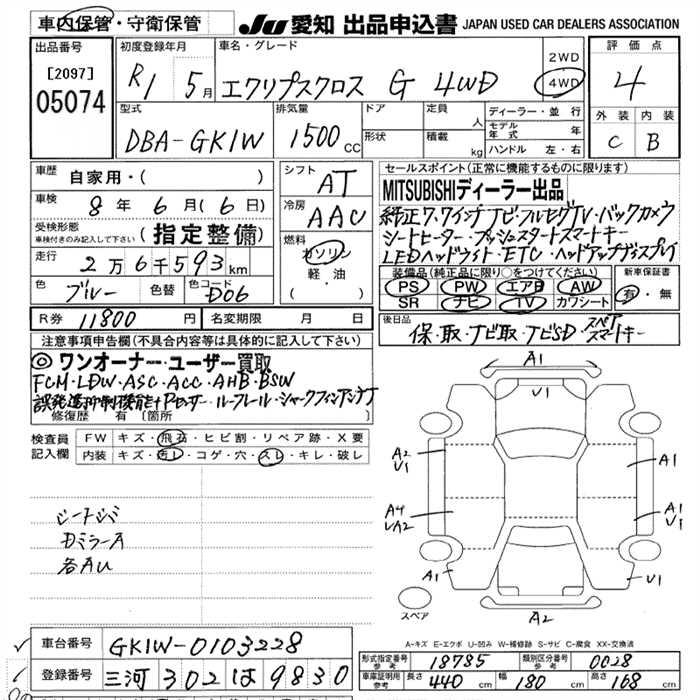 車内保管・守衛保管
JU 愛知 出品申込書 JAPAN USED CAR DEALERS ASSOCIATION
出品番号
[2097]
05074
初度登録年月
R1 5月
車名・グレード
エクリプスクロス G 4WD
2WD
4WD
評価点
4
外装 内装
C B
型式
DBA-GK1W
排気量
1500cc
ドア
形状
定員 人
積載 kg
ディーラー・並行
モデル年式 年
ハンドル 左・右
車歴 自家用・( )
車検 8年6月(6日)
受検形態
車検付きのみ記入して下さい (指定整備)
走行 2万6千593km
色 ブルー 色替 色コード D06
シフト AT
冷房 AAC
燃料 ガソリン
軽・油
( )
セールスポイント(正常に機能するものに限ります)
MITSUBISHIディーラー出品
純正7.7インチナビ・フルセグTV・バックカメラ
シートヒーター・プッシュスタートスマートキー
LEDヘッドライト・ETC・ヘッドアップディスプレイ
装備品(純正品に限り○をつけてください)
PS PW エアB AW
SR ナビ TV カワシート
新車保証書
有・無
R券 11800円 名変期限 月 日
後日品 保・取・ナビ取・ナビSD・スペアスマートキー
注意事項申告欄(不具合内容等は具体的に記入して下さい)
◎ワンオーナー・ユーザー買取
FCM・LDW・ASC・ACC・AHB・BSW
誤発進抑制機能 ルーフレール・シャークフィンアンテナ
修復歴 有 〔箇所
検査員記入欄
FW キズ・飛石・ヒビ割・リペア跡・X要
内装 キズ・汚レ・コゲ・穴・スレ・キレ・破レ
シートシミ
DミラーA
各AU
A1
V1
A2
V1
A1
A4
UA2
A1
A1
V1
A2
スペア
A-キズ E-エクボ U-凹み W-補修跡 S-サビ C-腐食 XX-交換済
車台番号 GK1W-0103228
登録番号 三河 302 ほ 9830
形式指定番号参考 18785 類別区分番号参考 0028
車庫証明用参考 長さ 440cm 幅 180cm 高さ 168cm